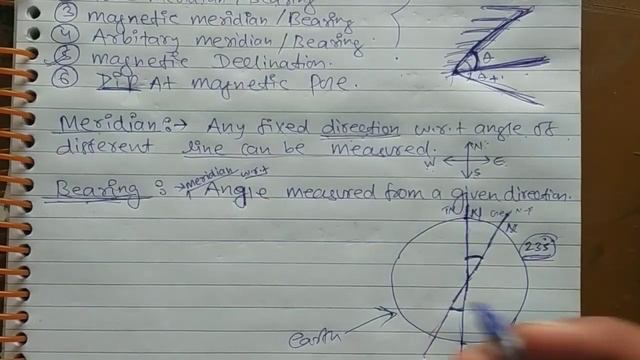 ③ magnetic meridian/Bearing
④ Arbitary meridian/Bearing
⑤ magnetic Declination.
⑥ Dip At magnetic Pole.
A
A
Meridian:→ Any fixed direction w.r.t angle of
different line can be measured.
N
W E
S
meridian w.r.t
Bearing : → Angle measured from a given direction.
TN
N
23.5°
earth